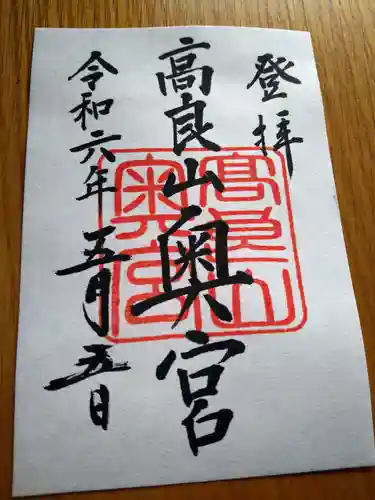 登拝
高良山奥宮
令和六年五月五日
高良山奥宮